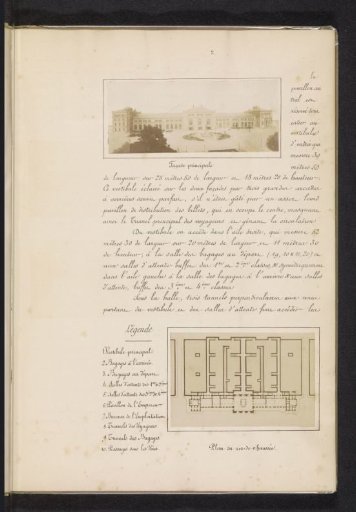 2
Le
pavillon cen
tral con
mesure 30
mètres 50
Façade principale
de longueur sur 25 mètres 80 de largeur et 18 mètres 20 de hauteur.
Ce vestibule éclairé sur les deux façades par trois grandes arcades
à caractère serein parfait, s'il n'était gâté par un assez lourd
pavillon de distribution des billets, qui en occupe le centre, masquant
ainsi le tunnel principal des voyageurs et gênant la circulation
Du vestibule on accède dans l'aile droite, qui mesure 62
mètres 30 de largeur sur 20 mètres de largeur et 11 mètres 30
de hauteur, à la salle des bagages au départ,
aux salles d'attente buffet des 1ères et 2èmes classes, et symétriquement
dans l'aile gauche à la salle des bagages à l'arrivée et aux salles
d'attente, buffet des 3èmes et 4èmes classes
Sous la halle, trois tunnels perpendiculaires aux
du vestibule et des salles d'attente font accéder les
Légende
1 Vestibule principal
2 Bagages à l'arrivée
3 Bagages au départ
4 Salles d'attente des 1re et 2me
5 Salles d'attente des 3me et 4me
6 Pavillon de l'Empereur
7 Bureaux de l'exploitation
8 Tunnels des Voyageurs
9 Tunnels des Bagages
10 Passages sous les Voies
Plan du rez-de-chaussée